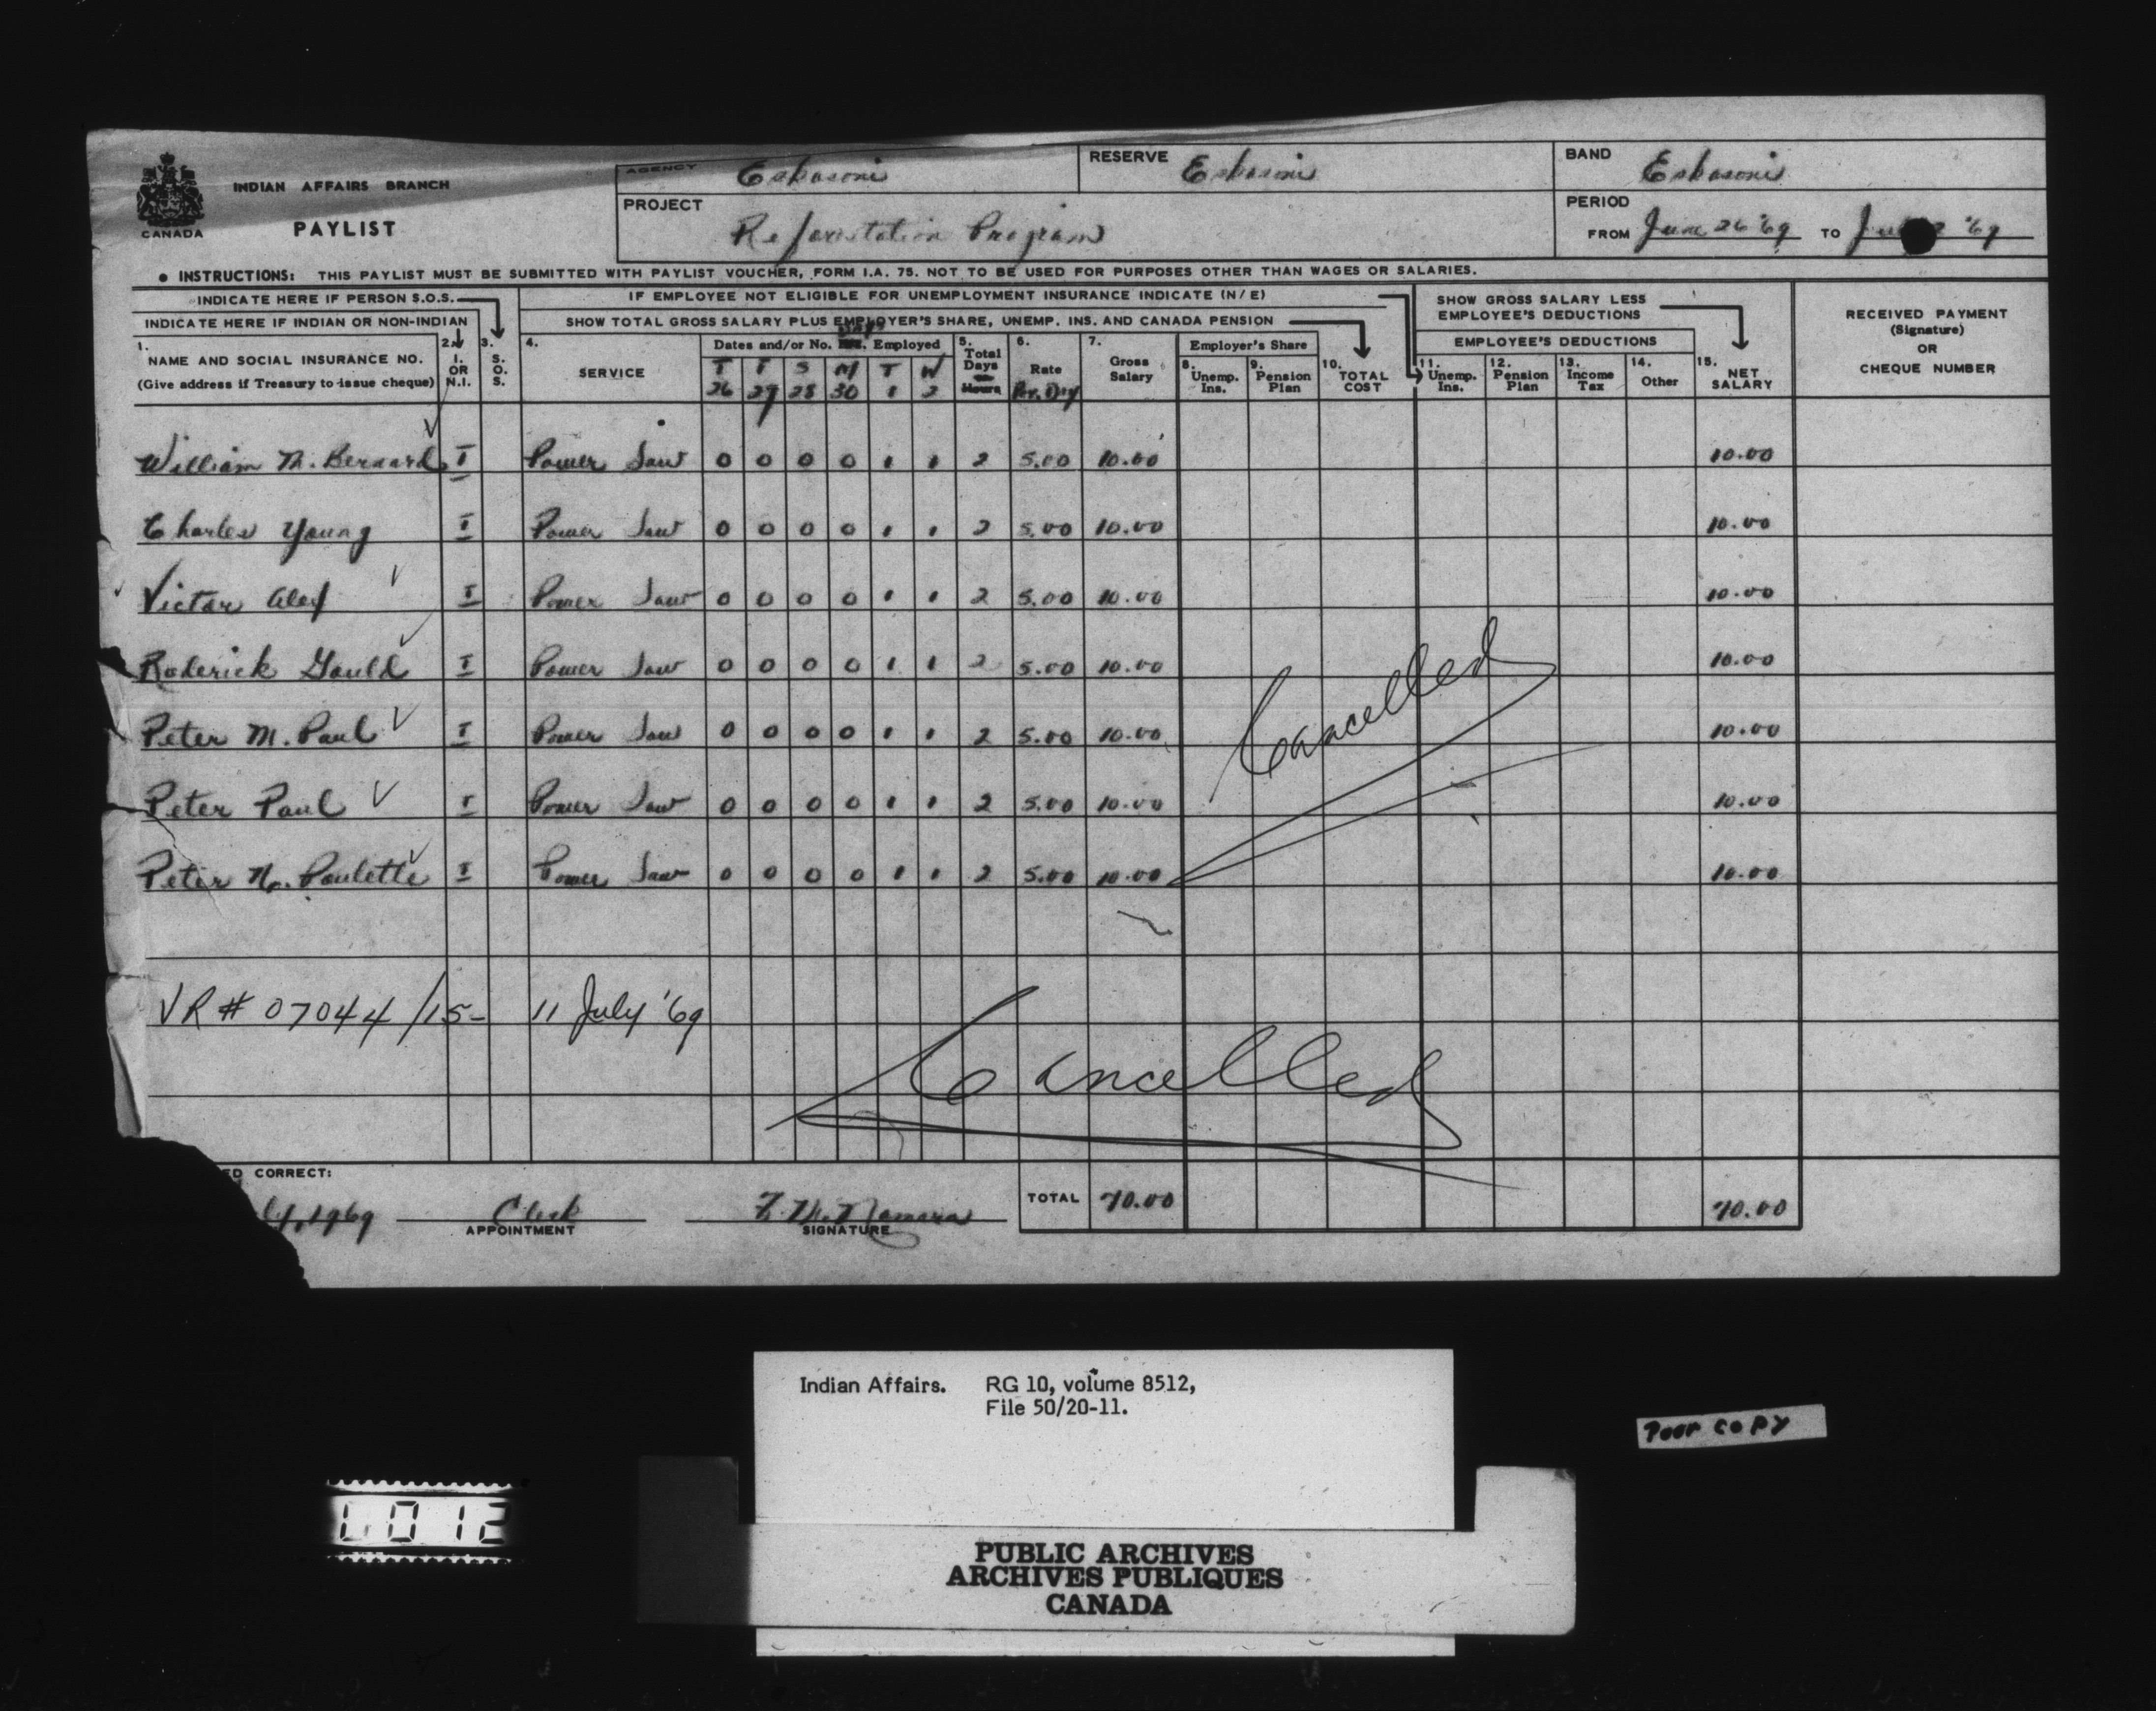 CANADA
INDIAN AFFAIRS BRANCH
PAYLIST
AGENCY Eskasoni
RESERVE Eskasoni
BAND Eskasoni
PROJECT Reforestation Program
PERIOD
FROM June 26 '69 TO '69
• INSTRUCTIONS: THIS PAYLIST MUST BE SUBMITTED WITH PAYLIST VOUCHER, FORM I.A. 75. NOT TO BE USED FOR PURPOSES OTHER THAN WAGES OR SALARIES.
INDICATE HERE IF PERSON S.O.S.
INDICATE HERE IF INDIAN OR NON-INDIAN
IF EMPLOYEE NOT ELIGIBLE FOR UNEMPLOYMENT INSURANCE INDICATE (N/E)
SHOW TOTAL GROSS SALARY PLUS EMPLOYER'S SHARE, UNEMP. INS. AND CANADA PENSION
SHOW GROSS SALARY LESS
EMPLOYEE'S DEDUCTIONS
RECEIVED PAYMENT
(Signature)
OR
CHEQUE NUMBER
1. NAME AND SOCIAL INSURANCE NO.
(Give address if Treasury to issue cheque)
2. I. OR N.I.
3. S. O. S.
4. SERVICE
Dates and/or No. Employed
T T S M T W
26 27 28 30 1 2
5. Total Days Hours
6. Rate Per. Day
7. Gross Salary
Employer's Share
8. Unemp. Ins.
9. Pension Plan
10. TOTAL COST
EMPLOYEE'S DEDUCTIONS
11. Unemp. Ins.
12. Pension Plan
13. Income Tax
14. Other
15. NET SALARY
William M. Bernard I Power Saw 0 0 0 0 1 1 2 5.00 10.00 10.00
Charles Young I Power Saw 0 0 0 0 1 1 2 5.00 10.00 10.00
Victor Alex I Power Saw 0 0 0 0 1 1 2 5.00 10.00 10.00
Roderick Gould I Power Saw 0 0 0 0 1 1 2 5.00 10.00 10.00
Peter M. Paul I Power Saw 0 0 0 0 1 1 2 5.00 10.00 10.00
Peter Paul I Power Saw 0 0 0 0 1 1 2 5.00 10.00 10.00
Peter Paulette I Power Saw 0 0 0 0 1 1 2 5.00 10.00 10.00
Cancelled
VR # 07044/15- 11 July '69
Cancelled
ED CORRECT:
1969 Clerk
APPOINTMENT
SIGNATURE
TOTAL 70.00 70.00
Indian Affairs. RG 10, volume 8512,
File 50/20-11.
Poor copy
0012
PUBLIC ARCHIVES
ARCHIVES PUBLIQUES
CANADA